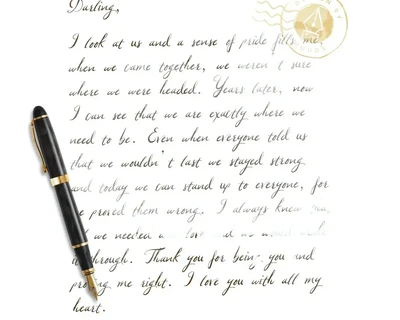 Darling,
I look at us and a sense of pride fills me,
when we came together, we weren't sure
where we were headed. Years later, now
I can see that we are exactly where we
need to be. Even when everyone told us
that we wouldn't last we stayed strong
and today we can stand up to everyone, for
we proved them wrong. I always knew
we needed love and we would
it through. Thank you for being you and
proving me right. I love you with all my
heart.